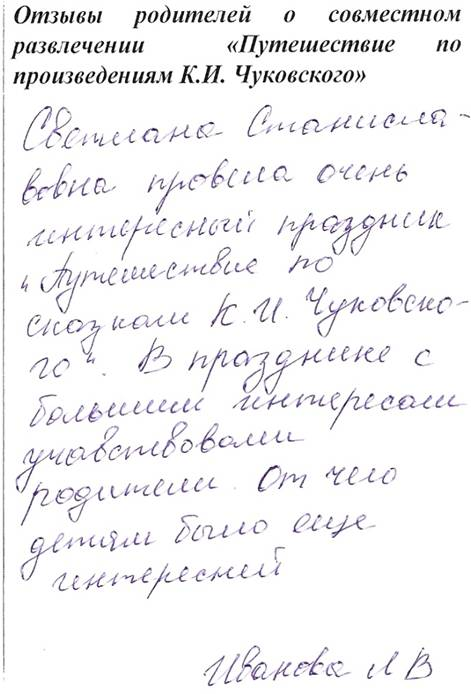 Отзывы родителей о совместном
развлечении «Путешествие по
произведениям К.И. Чуковского»
Светлана Станисла-
вовна провела очень
интересный праздник
"Путешествие по
сказкам К.И. Чуковско-
го". В празднике с
большим интересом
учавствовали
родители. От чего
детям было еще
интересней
Иванова Л В